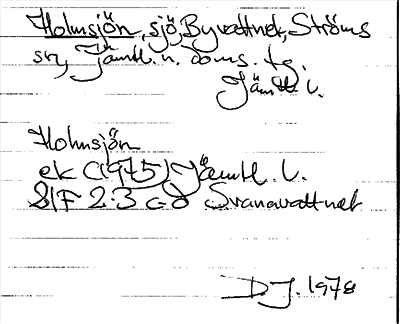 Holmsjön, sjö, Byvattnet, Ströms
sn, Jämtl. n. doms. tg
Jämtl l.
Holmsjön
ek (1975) Jämtl. l.
SIF 2:3 Svanavattnet
DJ. 1978